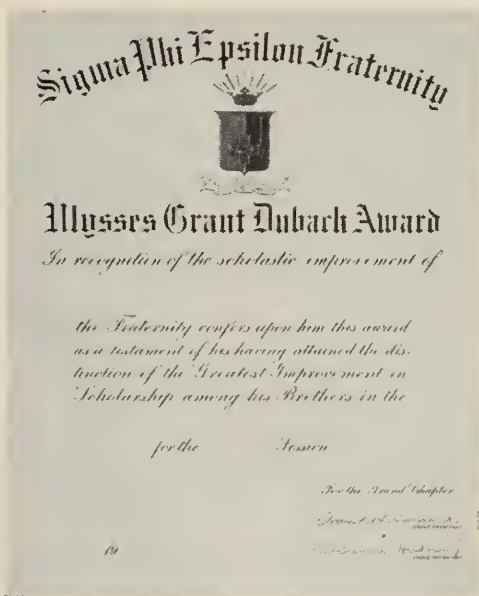 Sigma Phi Epsilon Fraternity
Ulysses Grant Dubach Award
In recognition of the scholastic improvement of
the Fraternity confers upon him this award
as a testament of his having attained the dis-
tinction of the Greatest Improvement in
Scholarship among his Brothers in the
for the Session
For the Grand Chapter